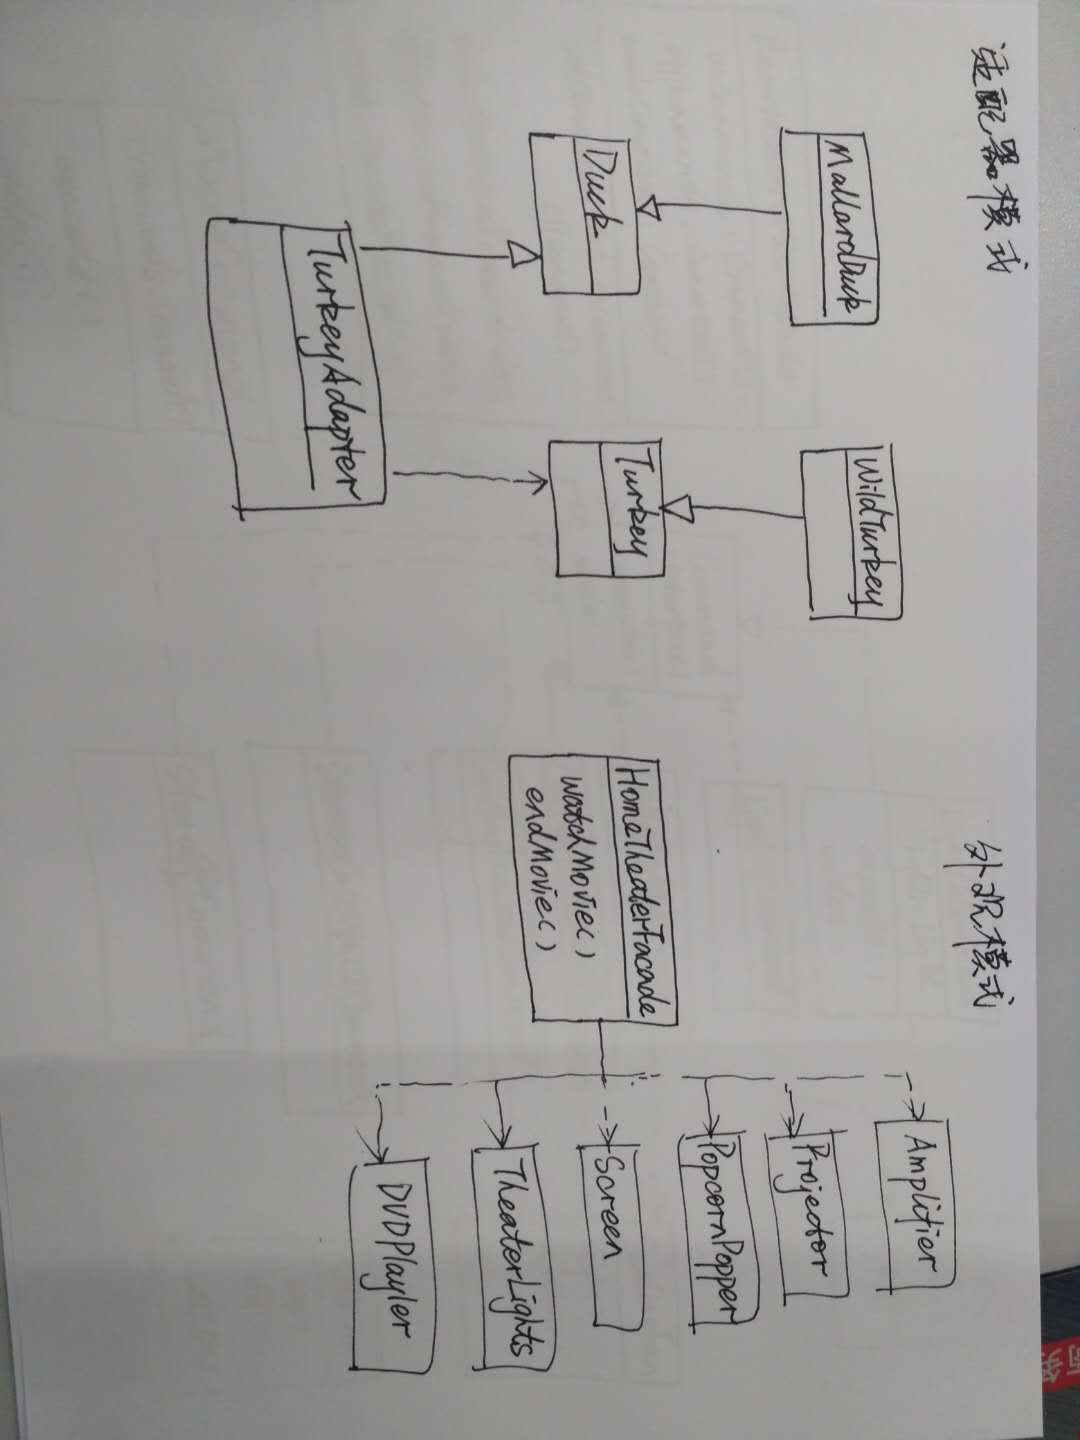 适配器模式
MallardDuck
WildTurkey
Duck
Turkey
TurkeyAdapter
外观模式
HomeTheaterFacade
watchMovie()
endMovie()
Amplifier
Projector
PopcornPopper
Screen
TheaterLights
DVDPlayler